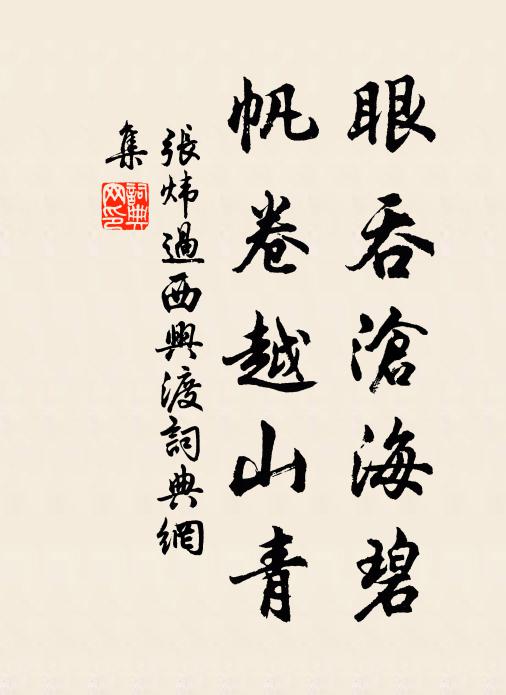 眼吞滄海碧
帆卷越山青
張煒過西興渡詞典網
集
詞典
网印